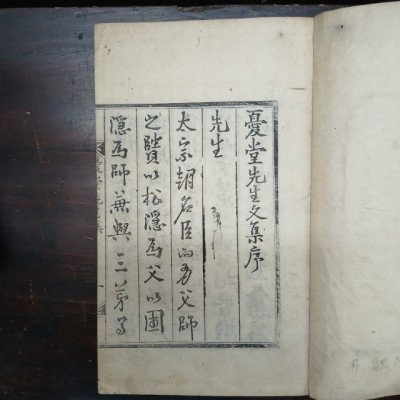 憂堂先生文集序
先生
太宗朝名臣而有父師
之賢以松隱為父以圃
隱為師兼與三弟